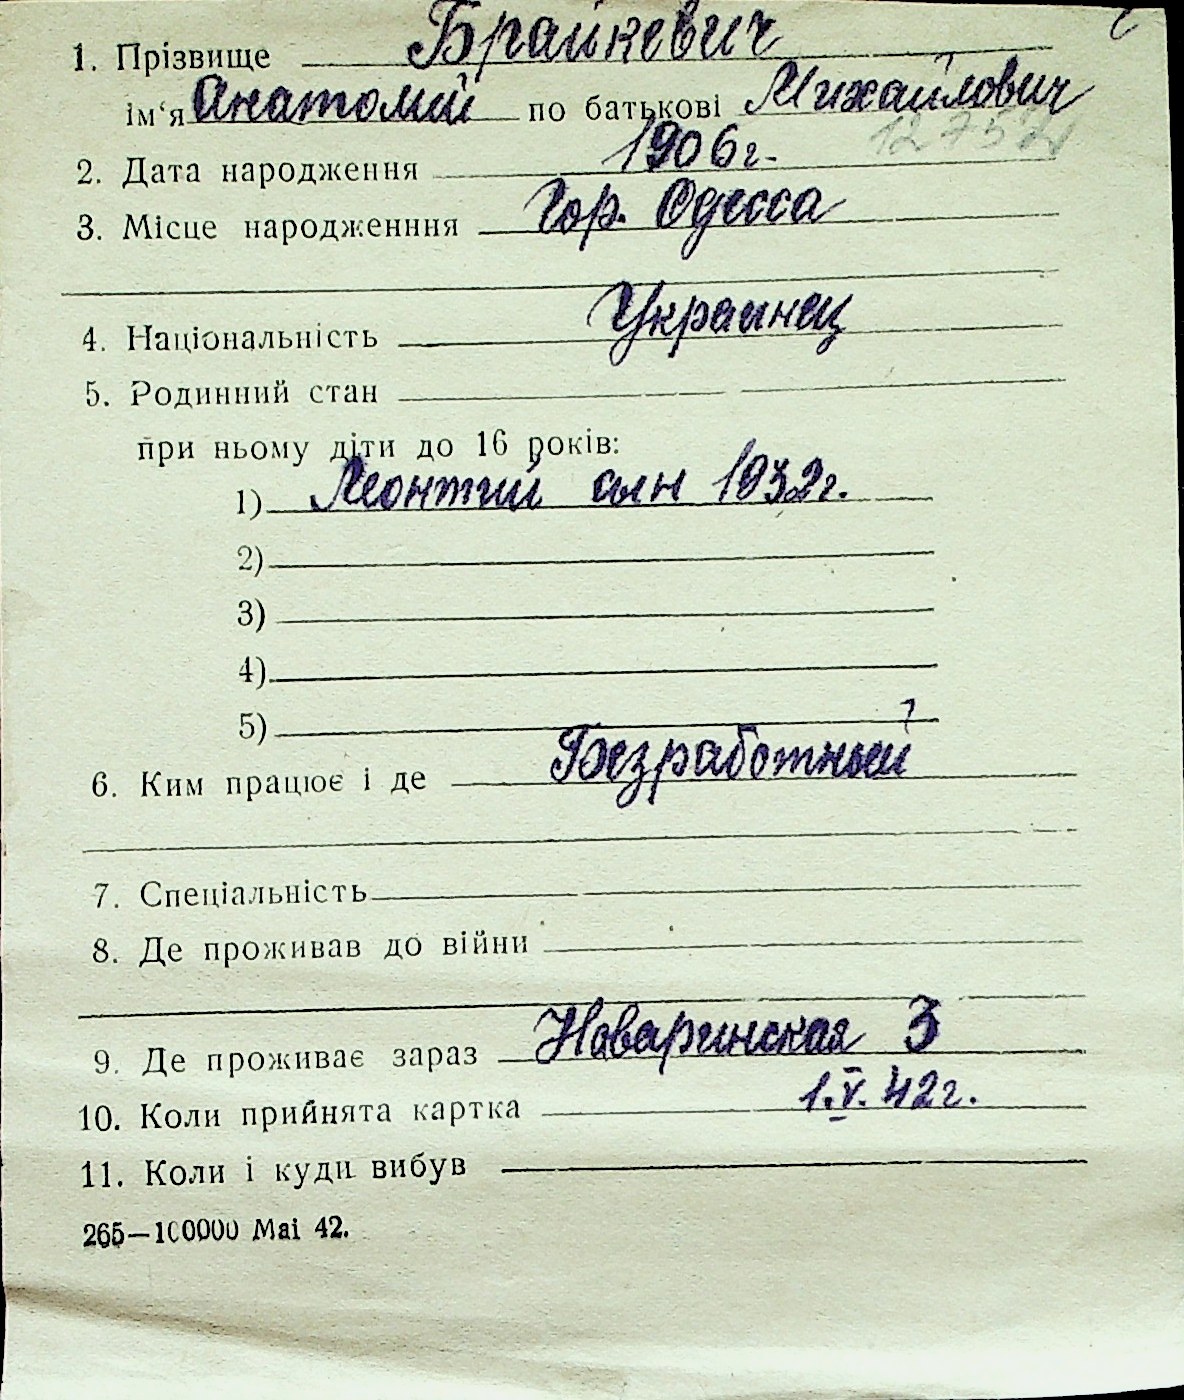 1. Прізвище Брайкевич
ім‘я Анатолий по батькові Михайлович
12752
2. Дата народження 1906 г.
3. Місце народженння Гор. Одесса
4. Національність Украинец
5. Родинний стан
при ньому діти до 16 років:
1) Леонтий сын 1932 г.
2)
3)
4)
5)
6. Ким працює і де Безработный
7. Спеціальність
8. Де проживав до війни
9. Де проживає зараз Наваринская 3
10. Коли прийнята картка 1.V.42 г.
11. Коли і куди вибув
265—100000 Mai 42.